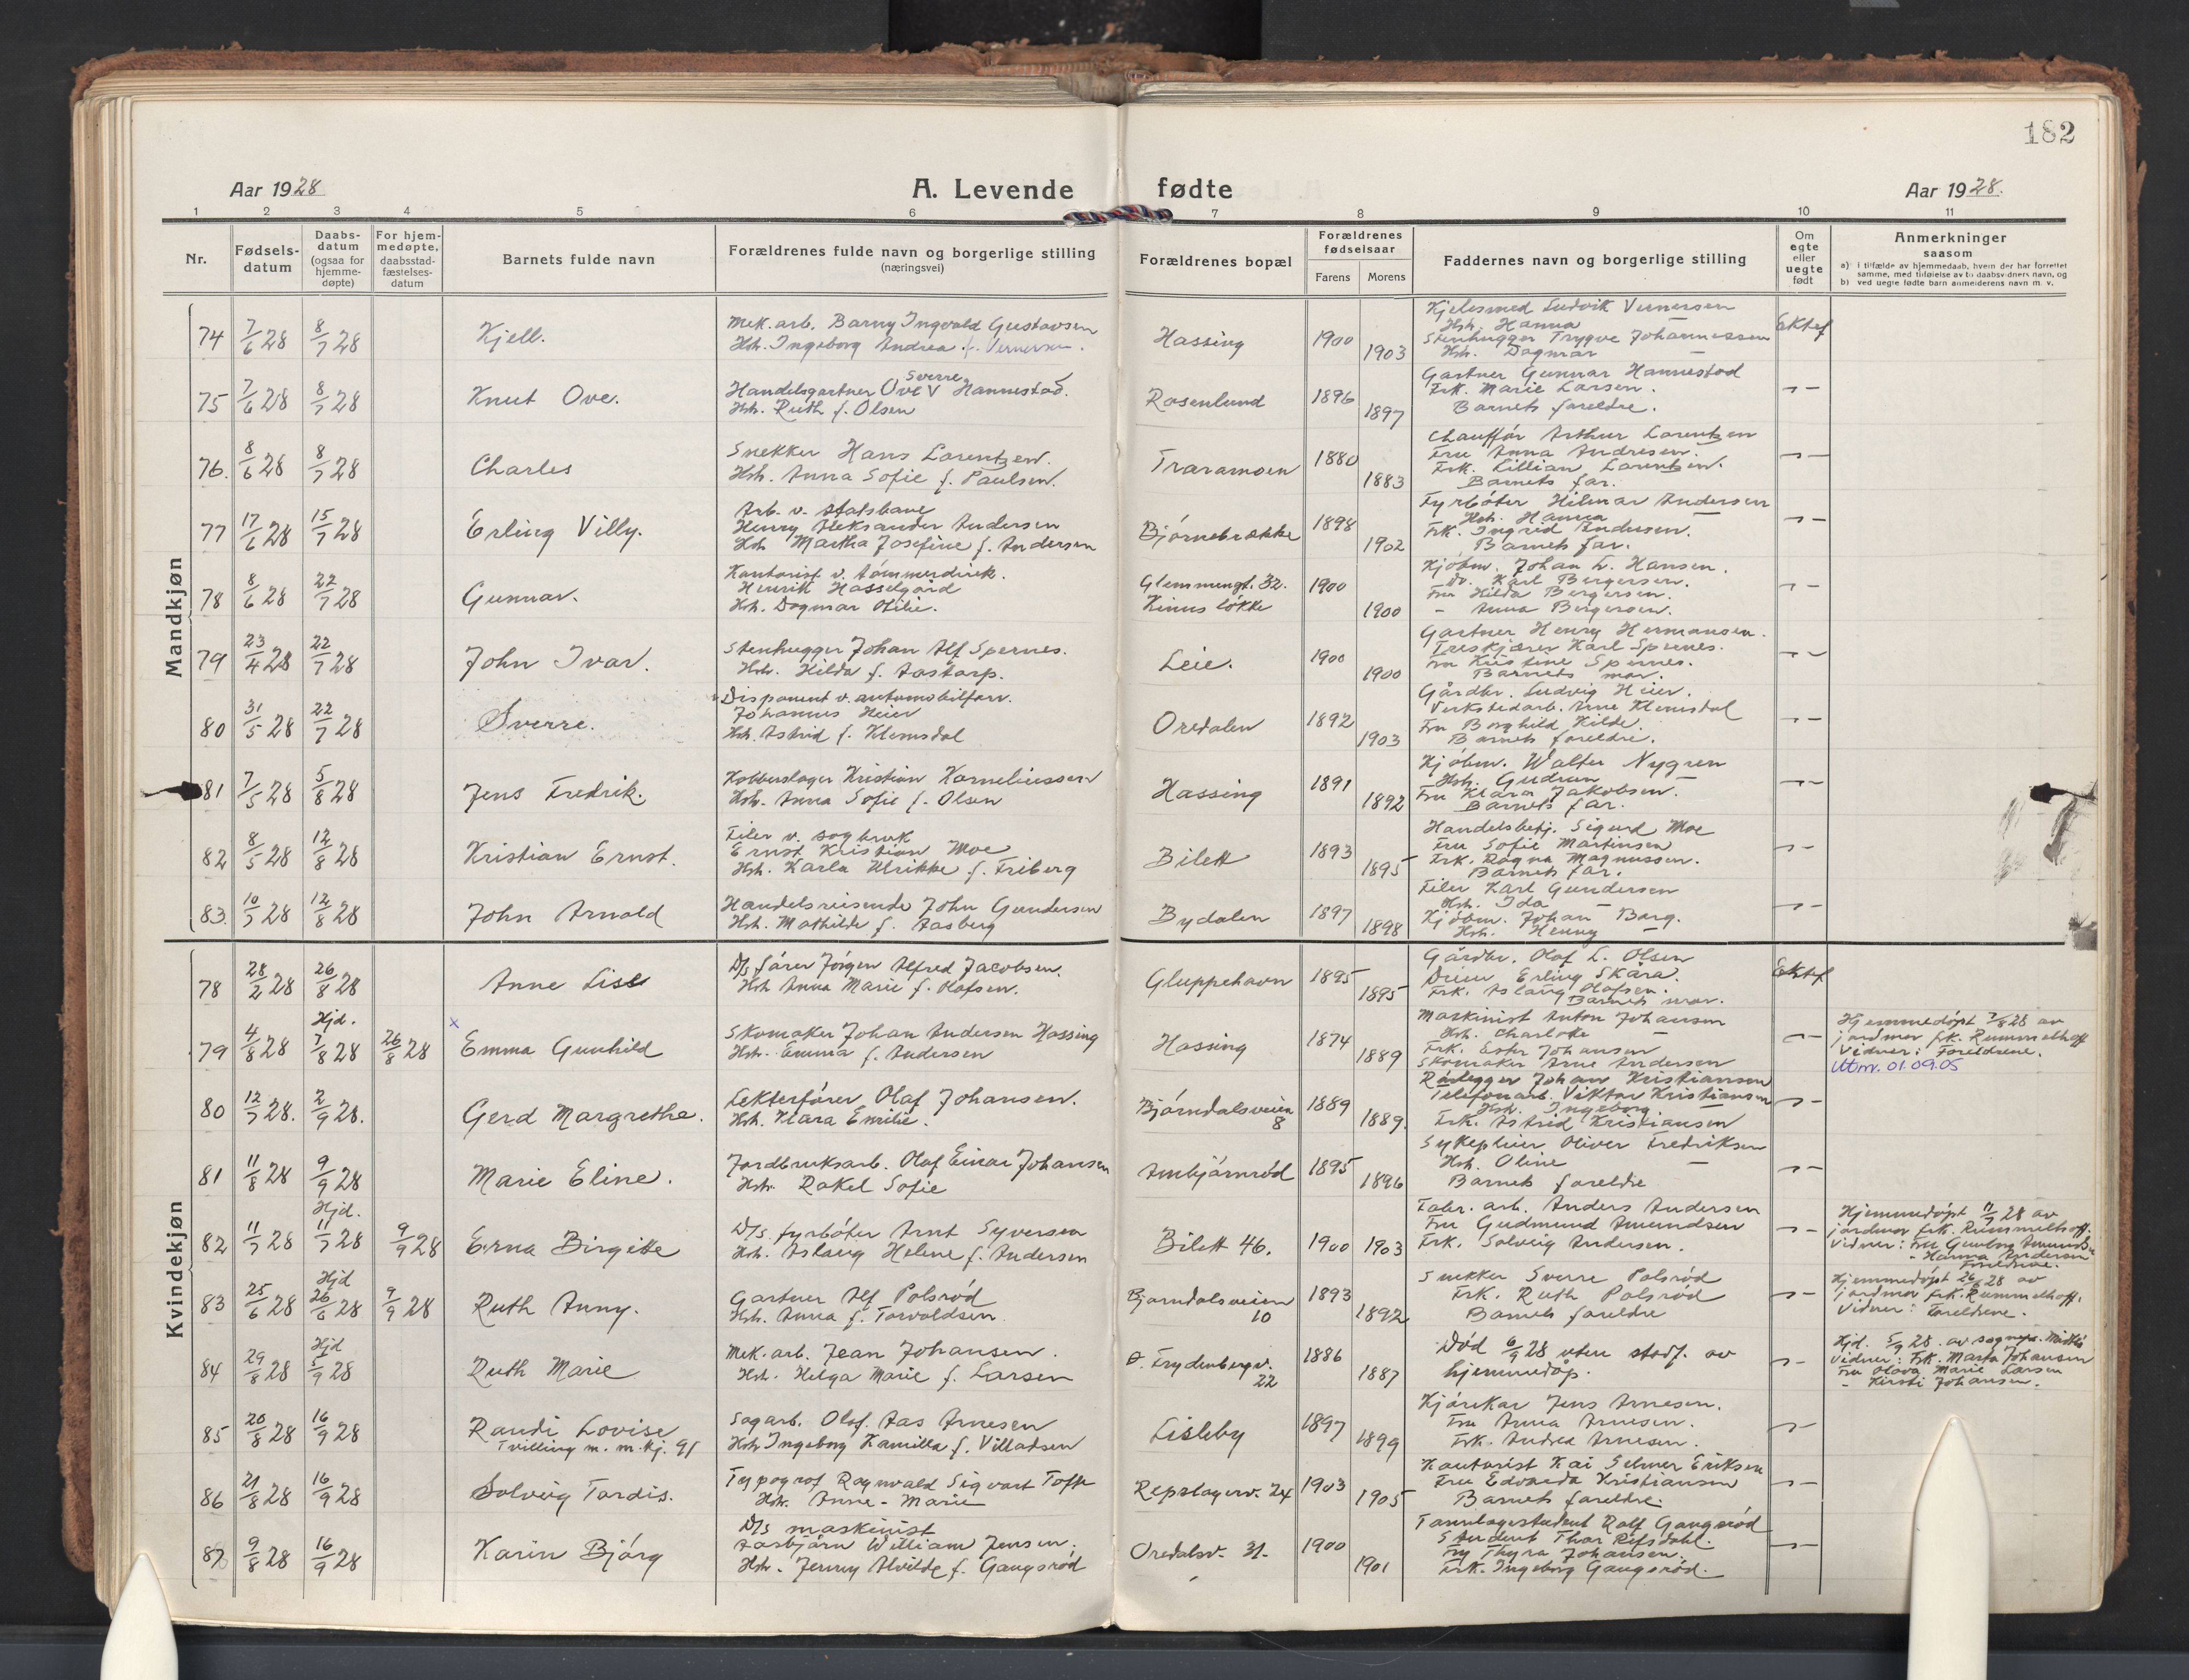 182
Aar 1928
A. Levende fødte
Aar 1928.
1 2 3 4 5 6 7 8 9 10 11
Nr.
Fødsels-
datum
Daabs-
datum
(ogsaa for
hjemme-
døpte)
For hjem-
medøpte,
daabsstad-
fæstelses-
datum
Barnets fulde navn
Forældrenes fulde navn og borgerlige stilling
(næringsvei)
Forældrenes bopæl
Forældrenes
fødselsaar
Farens Morens
Faddernes navn og borgerlige stilling
Om
egte
eller
uegte
født
Anmerkninger
saasom
a) i tilfælde av hjemmedaab, hvem der har forrettet
samme, med tilføielse av to daabsvidners navn, og
b) ved uegte fødte barn anmelderens navn m. v.
Mandkjøn
74 7/6 28 8/7 28 Kjell.
Mek. arb. Barny Ingvald Gustavsen
Hstr. Ingeborg Andrea f. Vernersen.
Hassing 1900 1903
Kjelesmed Ludvik Vernersen
Hstr. Hanna
Stenhugger Trygve Johannessen
Hstr. Dagmar
Ektef
75 7/6 28 8/7 28 Knut Ove.
Sverre
Handelsgartner Ove V Hannestad.
Hstr. Ruth f. Olsen
Rosenlund 1896 1897
Gartner Gunnar Hannestad
Frk. Marie Larsen.
Barnets foreldre.
76. 8/6 28 8/7 28 Charles
Snekker Hans Lorentzen.
Hstr. Anna Sofie f. Paulsen.
Traramoen 1880 1883
Chauffør Arthur Lorentzen
Fru Anna Andresen.
Frk. Lillian Lorentzen.
Barnets far.
77 17/6 28 15/7 28 Erling Villy.
Arb. v. statsbane
Henry Aleksander Andersen
Hstr Martha Josefine f. Andersen
Bjørnebrække 1898 1902
Fyrbøter Hilmar Andersen
Hstr. Hanna
Frk. Ingrid Andersen.
Barnets far.
78 8/6 28 22/7 28 Gunnar.
Kontorist v. tømmerdirek.
Henrik Hasselgård
Hstr. Dagmar Otilie.
Glemmengt. 32.
Kinus løkke
1900 1900
Kjøbm. Johan L. Hansen.
Do. Karl Bergersen.
Fru Hilda Bergersen.
- Anna Bergersen.
79 23/4 28 22/7 28 John Ivar.
Stenhugger Johan Alf Spernes.
Hstr. Hilda f. Aastorp.
Leie. 1900 1900
Gartner Henry Hermansen.
Treskjærer Karl Spernes.
Fru Kristine Spernes.
Barnets mor.
80 31/5 28 22/7 28 Sverre.
Disponent v. automobilforr.
Johannes Heier
Hstr. Astrid f. Klemsdal
Oredalen 1892 1903
Gårdbr. Ludvig Heier.
Verkstedarb. Arne Klemsdal
Fru Borghild Kilde.
Barnets foreldre.
81 7/5 28 5/8 28 Jens Fredrik.
Kobberslager Kristian Korneliussen
Hstr. Anna Sofie f. Olsen
Hassing 1891 1892
Kjøbm. Walter Nygren
Hstr. Gudrun
Fru Klara Jakobsen.
Barnets far.
82 8/5 28 12/8 28 Kristian Ernst.
Filer v. sagbruk
Ernst Kristian Moe
Hstr. Karla Ulrikke f. Friberg
Bilett 1893 1895
Handelsbetj. Sigurd Moe
Fru Sofie Martinsen
Frk. Ragna Magnussen.
Barnets far.
83. 10/7 28 12/8 28 John Arnold
Handelsreisende John Gundersen
Hstr. Mathilde f. Aasberg
Bydalen 1897 1898
Filer Karl Gundersen
Hstr. Ida
Kjøbm. Johan Borg.
Hstr. Henny
Kvindekjøn
78 28/2 28 26/8 28 Anne Lise
D/s fører Jørgen Alfred Jacobsen.
Hstr Anna Marie f. Olafsen.
Gluppehavn 1895 1895
Gårdbr. Olaf L. Olsen
Dreier Erling Skåra.
Frk. Aslaug Olafsen.
Barnets mor.
Ektef
79 4/8 28 Hjd. 7/8 28 26/8 28 x Emma Gunhild
Skomaker Johan Andersen Hassing
Hstr. Emma f. Andersen
Hassing 1874 1889
Maskinist Anton Johansen
Hstr. Charlotte
Frk. Ester Johansen
Skomaker Arne Andersen
Hjemmedøpt 7/8 28 av
jordmor frk. Rummelhoff
Vidner: Foreldrene.
Utm. 01.09.05
80 12/7 28. 2/9 28. Gerd Margrethe.
Lekterfører Olaf Johansen.
Hstr. Klara Emilie.
Bjørndalsveien
8
1889 1889.
Rørlegger Johan Kristiansen
Telefonarb. Viktor Kristiansen
Hstr. Ingeborg
Frk. Astrid Kristiansen
81 11/8 28 9/9 28 Marie Eline.
Jordbruksarb. Olaf Einar Johansen
Hstr. Rakel Sofie
Ambjørnrød 1895 1896
Sykepleier Oliver Fredriksen
Hstr. Oline
Barnets foreldre
82 11/7 28 Hjd. 11/7 28 9/9 28 Erna Birgitte
D/s. fyrbøter Arnt Syversen
Hstr. Aslaug Helene f. Andersen
Bilett 46. 1900 1903
Fabr. arb. Anders Andersen
Fru Gudmund Amundsen
Frk. Solveig Andersen.
Hjemmedøpt 11/7 28 av
jordmor frk. Rummelhoff.
Vidner: Fru Gunborg Amunds.
- Hanna Andersen
Foreldrene.
83 25/6 28 Hjd 26/6 28 9/9 28 Ruth Anny.
Gartner Alf Polsrød
Hstr. Anna f. Torvaldsen
Bjørndalsveien
10
1893 1892
Snekker Sverre Polsrød
Frk. Ruth Polsrød
Barnets foreldre
Hjemmedøpt 26/6 28 av
jordmor frk. Rummelhoff.
Vidner: Foreldrene.
84 29/8 28 Hjd 5/9 28 Ruth Marie
Mek. arb. Jean Johansen.
Hstr. Helga Marie f. Larsen
Ø. Frydenbergv.
22
1886 1887
Død 6/9 28 uten stadf. av
hjemmedåp.
Hjd. 5/9 28. av sognepr.
Vidner: Frk. Marta Johansen
Fru Olava Marie Larsen
- Kirsti Johansen.
85 20/8 28 16/9 28 Randi Lovise
Tvilling m. m. kj. 91
Sagarb. Olaf. Aas Arnesen
Hstr Ingeborg Kamilla f. Villadsen
Lisleby 1897 1899
Kjørekar Jens Arnesen.
Fru Anna Arnesen.
Frk. Andrea Arnesen.
86 21/8 28 16/9 28 Solveig Tordis.
Typograf Ragnvald Sigvart Tofte
Hstr. Anne-Marie
Repslagerv. 24 1903 1905
Kontorist Kai Selmer Eriksen
Fru Edvarda Kristiansen
Barnets foreldre.
87 9/8 28 16/9 28 Karin Bjørg
D/s maskinist
Aasbjørn William Jensen.
Hstr. Jenny Alvilde f. Gaugsrød
Oredalsv. 31. 1900 1901
Tannlægestudent Rolf Gaugsrød
Student Thor Refsdahl.
Fru Thyra Johansen.
Frk. Ingeborg Gaugsrød.